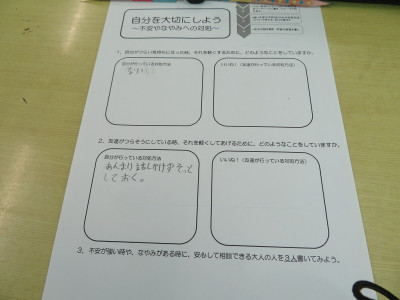 自分を大切にしよう
～不安やなやみへの対処～
1．自分がつらい気持ちになった時、それを軽くするために、どのようなことをしていますか。
自分が行っている対処方法
いいね！（友達が行っている対処方法）
ない
2．友達がつらそうにしている時、それを軽くしてあげるために、どのようなことをしていますか。
自分が行っている対処方法
いいね！（友達が行っている対処方法）
あんまり話しかけずそっと
しておく。
3．不安が強い時や、なやみがある時に、安心して相談できる大人の人を3人書いてみよう。